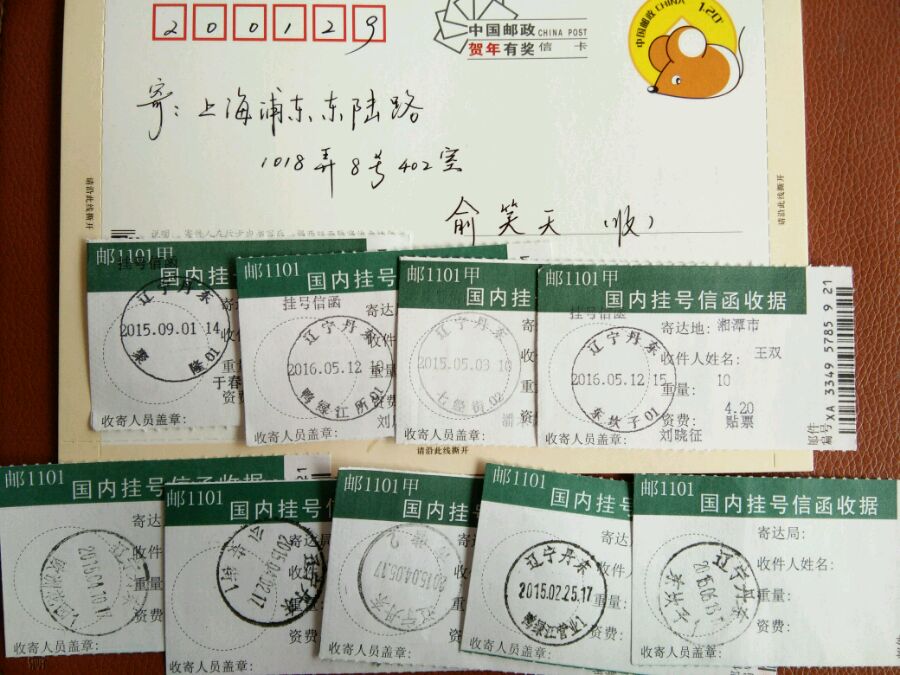 200129
中国邮政 CHINA POST
贺年有奖 信 卡
中国邮政 CHINA 1.20
寄: 上海浦东东陆路
1018弄8号402室
俞笑天 (收)
请沿此线撕开
请沿此线撕开
邮1101甲
挂号信函
国内挂号
辽宁丹东
2015.09.01 14
隆01
寄达
收件
重量
于春
资费
收寄人员盖章:
邮1101
国内挂号
挂号信函
辽宁丹东
2016.05.12
鸭绿江所01
寄达
收件
重量
资费
刘
收寄人员盖章:
邮1101甲
国内挂
辽宁丹东
2015.05.03
七经街02
收寄人员盖章:
邮1101甲
国内挂号信函收据
挂号信函
辽宁丹东
2016.05.12 15
东坎子01
寄达地: 湘潭市
收件人姓名: 王双
重量: 10
资费: 4.20
贴票
刘晓征
收寄人员盖章:
邮件
编号 XA 3349 5785 9 21
请沿此线撕开
邮1101
国内挂号
寄达
收件
重量
资费
收寄人员盖章:
邮1101
国内挂号
辽宁丹东
寄达局
收件
重量
资费
收寄人员盖章:
邮1101甲
国内挂
辽宁丹东
2015.04.05.17
收寄人员盖章:
邮1101
国内挂号
辽宁丹东
2015.02.25.17
鸭绿江营(业)
寄达
收件
重量
资费
收寄人员盖章:
邮1101
国内挂号信函收据
辽宁丹东
寄达局:
收件人姓名:
重量:
资费:
收寄人员盖章: